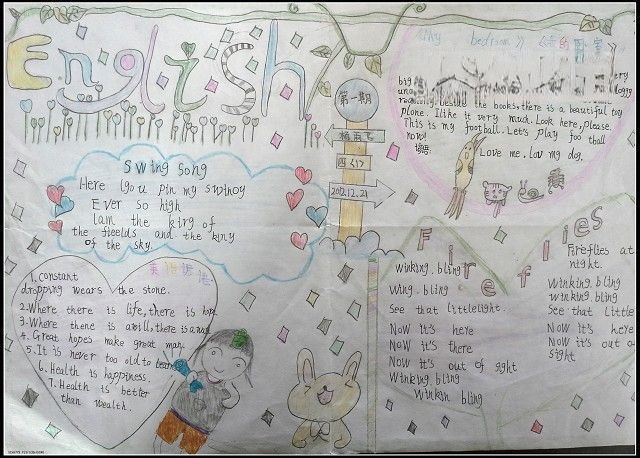 English
第一期
四(1)
2012.12.21
《My bedroom》
big
beside the books, there is a beautiful toy
plone. I like it very much. Look here, please.
This is my football. Let's play foo tball
now!
Love me. Lov my dog.
Swing song
Here Igo u pin my swinoy
Ever so high
Iam the kirg of
the fieelds and the kiny
of the sky.
英语谚语
1. constant
dropping wears the stone.
2. Where there is life, there is hope.
3. Where there is a will, there is a way.
4. Great hopes make great man.
5. It is never too old to learn.
6. Health is happiness.
7. Health is better
than wealth.
Fireflies
winking. bling
wing. bling
See that littlelight.
Now it's heye
Now it's there
Now it's out of sight
Winking bling
winkin bling
Fireflies at
night.
winking. bling
winking. bling
See that little
Now it's heye
Now it's out o
sight